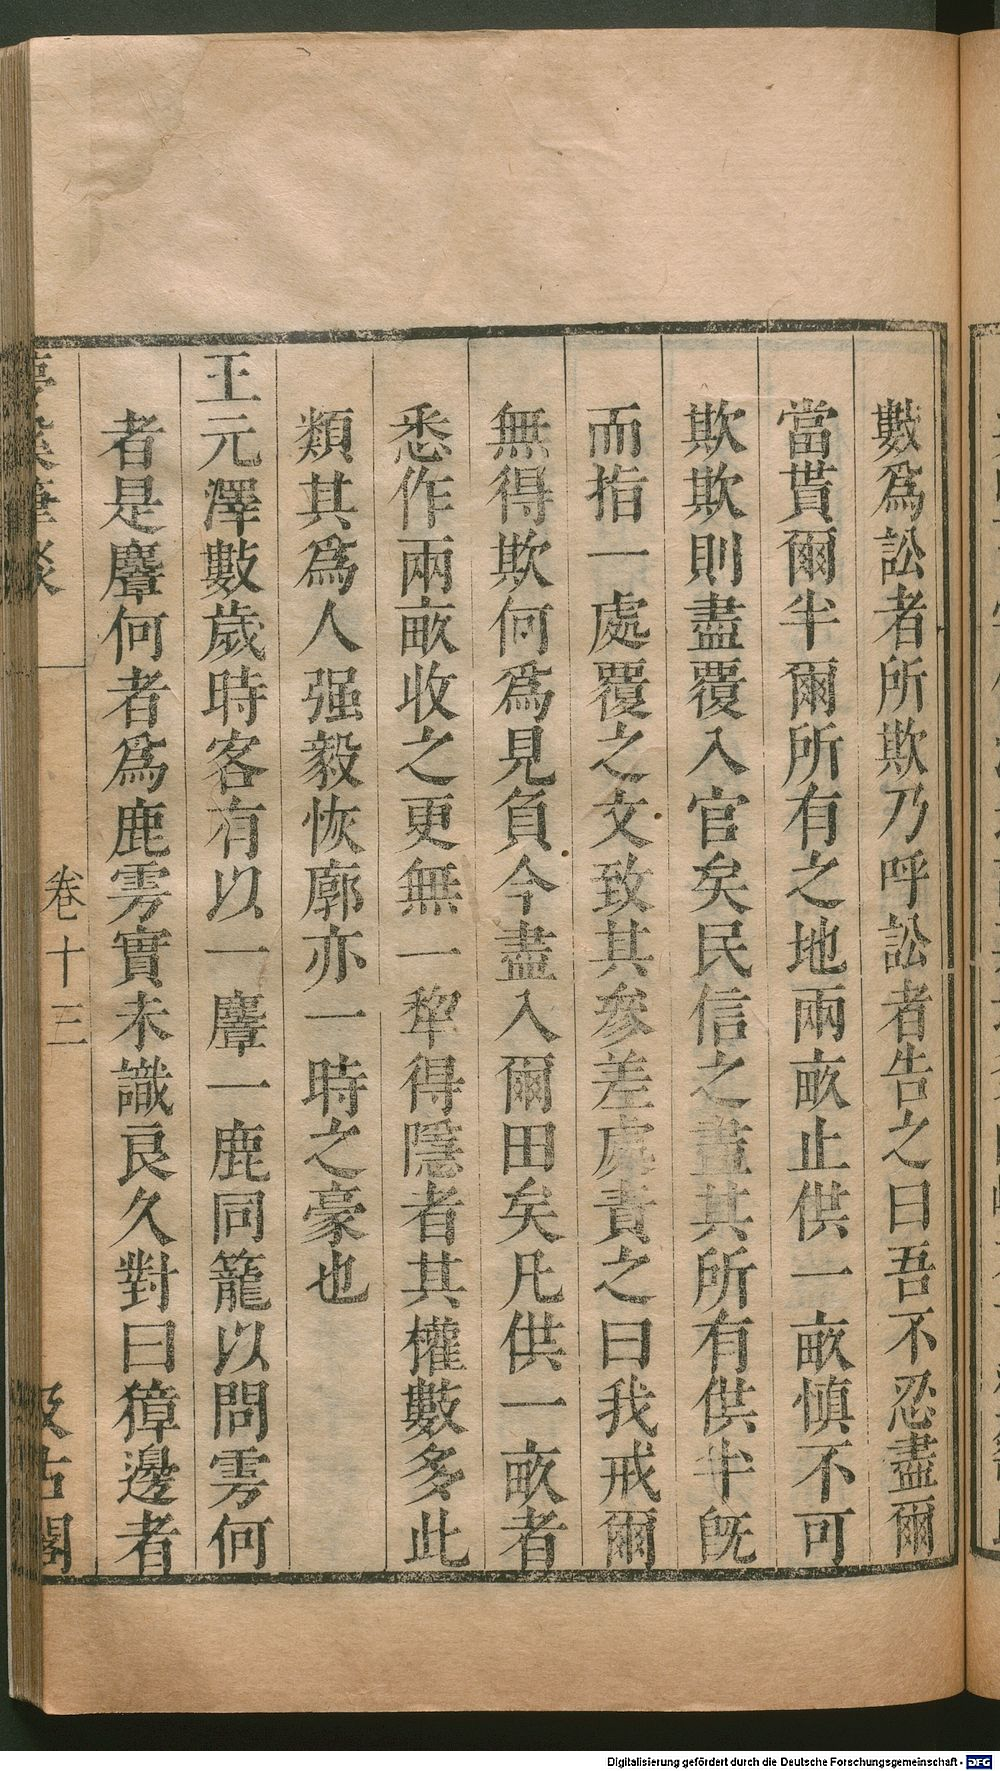 數爲訟者所欺乃呼訟者告之曰吾不忍盡爾
當貰爾半爾所有之地兩畝止供一畝慎不可
欺欺則盡覆入官矣民信之盡其所有供半旣
而指一處覆之文致其參差處責之曰我戒爾
無得欺何爲見負今盡入爾田矣凡供一畝者
悉作兩畝收之更無一犂得隱者其權數多此
類其爲人强毅恢廓亦一時之豪也
王元澤數歲時客有以一麞一鹿同籠以問雱何
者是麞何者爲鹿雱實未識良久對曰獐邊者
夢溪筆談
卷十三
汲古閣
Digitalisierung gefördert durch die Deutsche Forschungsgemeinschaft - DFG